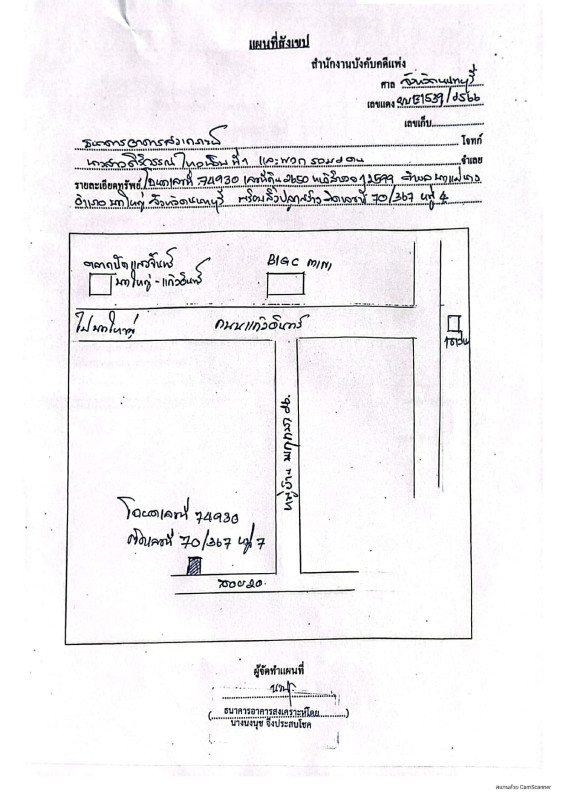 แผนที่สังเขป
สำนักงานบังคับคดีแพ่ง
ศาล จังหวัดนนทบุรี
เลขแดง ผบE1539/2566
เลขเก็บ
ธนาคารอาคารสงเคราะห์ โจทก์
นางสาวสิริวรรณ ที่ 1 และพวกรวม 2 คน จำเลย
รายละเอียดทรัพย์ โฉนดเลขที่ 74930 เลขที่ดิน 2650 หน้าสำรวจ 12599 ตำบล
อำเภอบางใหญ่ จังหวัดนนทบุรี พร้อมสิ่งปลูกสร้าง เลขที่ 70/367 หมู่
BIGC MINI
บางใหญ่ - แก้วอินทร์
ไปบางใหญ่ ถนนแก้วอินทร์
หมู่บ้าน พฤกษา 26
โฉนดเลขที่ 74930
เลขที่ 70/367 หมู่ 7
ซอย 20
ผู้จัดทำแผนที่
ธนาคารอาคารสงเคราะห์โดย
นางนงนุช จึงประสบโชค
สแกนด้วย CamScanner